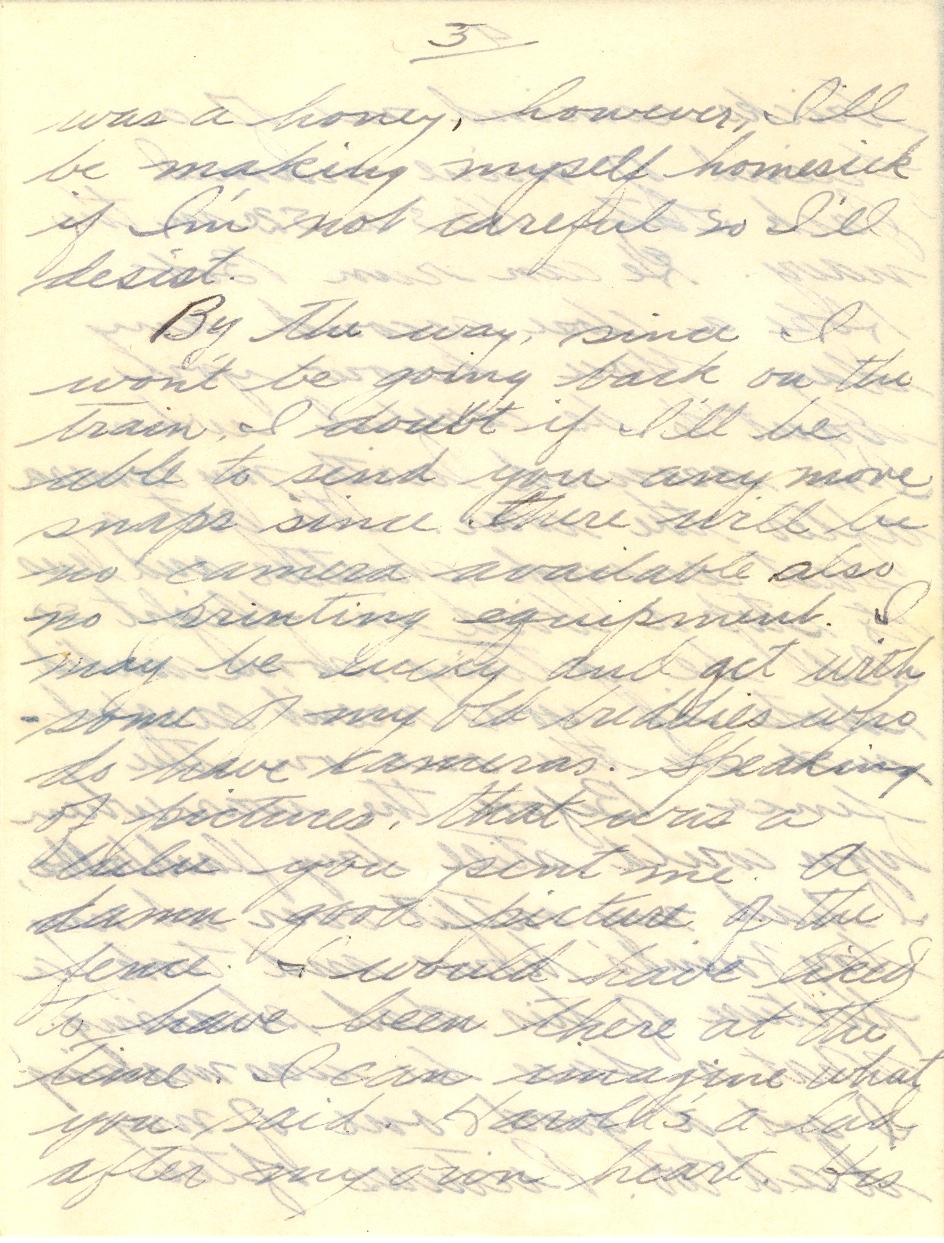 3
was a honey, however, I'll
be making myself homesick
if I'm not careful so I'll
desist.
By the way, since I
won't be going back on the
train, I doubt if I'll be
able to send you any more
snaps since there will be
no camera available also
no printing equipment. I
may be lucky and get with
some of my old buddies who
do have kameras. Speaking
of pictures, that was a
lulu you sent me. A
damn good picture of the
fence. I would have liked
to have been there at the
time. I can imagine what
you said. Harold's a lad
after my own heart. His